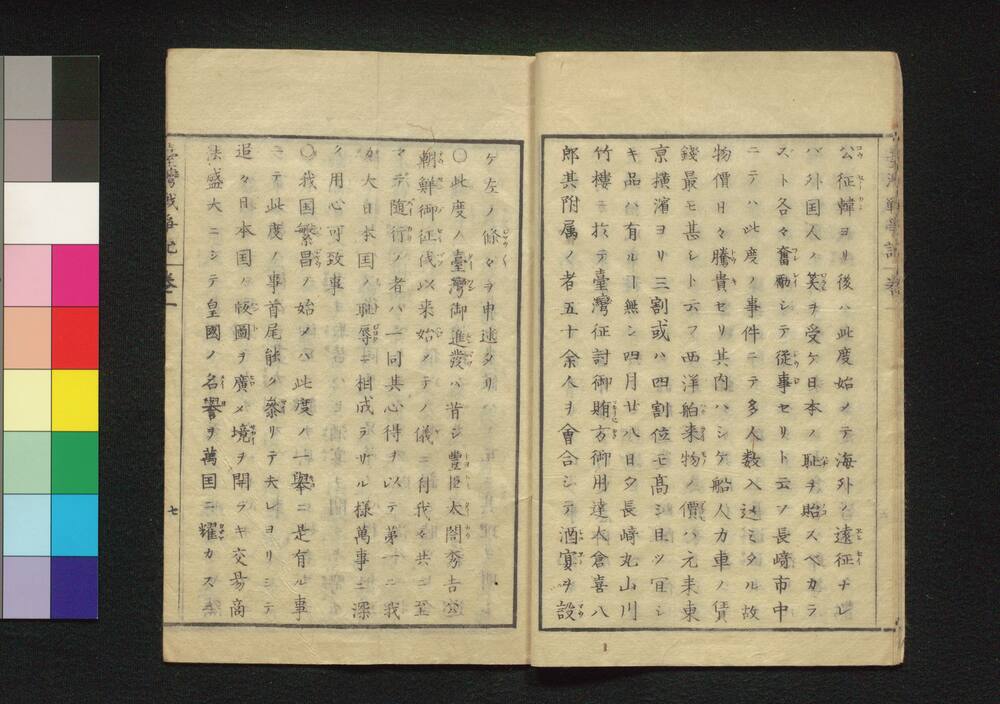 公征韓ヨリ後ハ此度始メテ海外ノ遠征ナレ
バ外国人ノ笑ヲ受ケ日本ノ耻ヲ貽スベカラ
ズト各々奮励シテ従事セリト云ソ長﨑市中
ニテハ此度ノ事件ニテ多人数入込ミタル故
物價日々騰貴セリ其内ハシケ船人力車ノ賃
銭最モ甚シト云フ西洋舶来物ノ價ハ元来東
京横濱ヨリ三割或ハ四割位モ髙シ且ツ宜シ
キ品ハ有ルヿ無シ四月廿八日夕長﨑丸山川
竹樓ニ於テ臺灣征討御賄方御用達大倉喜八
郎其附属ノ者五十余人ヲ會合シテ酒宴ヲ設
ケ左ノ條々ヲ申述タリ
〇此度ノ臺灣御進發ハ昔シ豊臣太閤秀吉公
朝鮮御征伐以来始メテノ儀ニ付我々共ニ至
マデ随行ノ者ハ一同其心得ヲ以テ第一ニ我
カ大日本国ノ耻辱ニ相成ラザル様萬事ニ深
ク用心可致事
〇我国繁昌ノ始メハ此度ノ一擧ニ是有ル事
ニテ此度ノ事首尾能ク参リテ夫レヨリシテ
追々日本国ノ版圖ヲ廣メ境ヲ開ラキ交易商
法盛大ニシテ皇國ノ名誉ヲ萬国ニ耀カス
臺灣戦争記
巻一
七